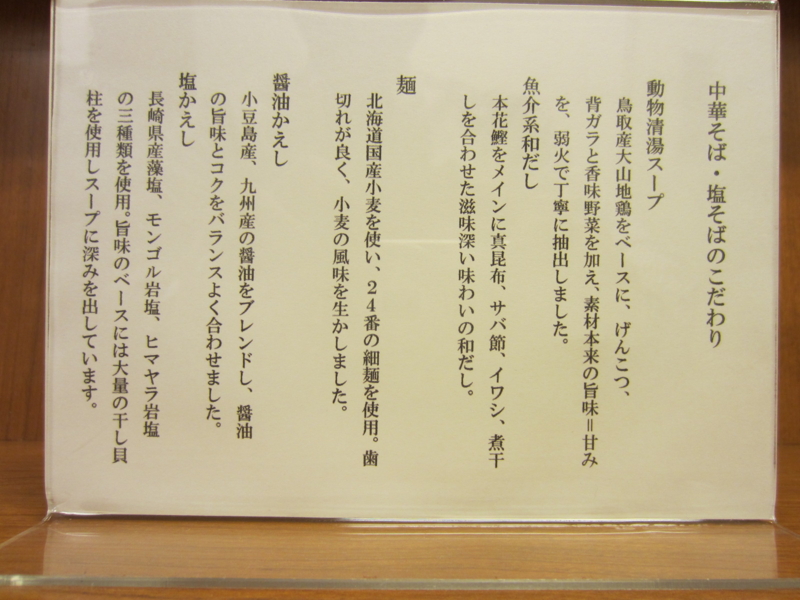 中華そば・塩そばのこだわり
動物清湯スープ
鳥取産大山地鶏をベースに、げんこつ、
背ガラと香味野菜を加え、素材本来の旨味＝甘み
を、弱火で丁寧に抽出しました。
魚介系和だし
本花鰹をメインに真昆布、サバ節、イワシ、煮干
しを合わせた滋味深い味わいの和だし。
麺
北海道国産小麦を使い、２４番の細麺を使用。歯
切れが良く、小麦の風味を生かしました。
醤油かえし
小豆島産、九州産の醤油をブレンドし、醤油
の旨味とコクをバランスよく合わせました。
塩かえし
長崎県産藻塩、モンゴル岩塩、ヒマヤラ岩塩
の三種類を使用。旨味のベースには大量の干し貝
柱を使用しスープに深みを出しています。